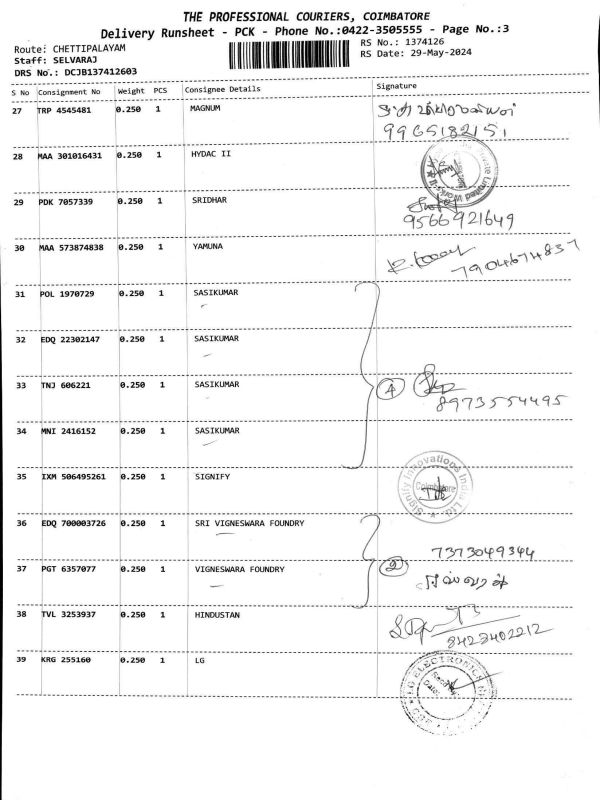 THE PROFESSIONAL COURIERS, COIMBATORE
Delivery Runsheet - PCK - Phone No.:0422-3505555 - Page No.:3
Route: CHETTIPALAYAM
RS No.: 1374126
Staff: SELVARAJ
RS Date: 29-May-2024
DRS No.: DCJB137412603
S No Consignment No Weight PCS Consignee Details Signature
27 TRP 4545481 0.250 1 MAGNUM
9965182151
28 MAA 301016431 0.250 1 HYDAC II
29 PDK 7057339 0.250 1 SRIDHAR
9566921649
30 MAA 573874838 0.250 1 YAMUNA
7904674837
31 POL 1970729 0.250 1 SASIKUMAR
32 EDQ 22302147 0.250 1 SASIKUMAR
33 TNJ 606221 0.250 1 SASIKUMAR 4
8973554495
34 MNI 2416152 0.250 1 SASIKUMAR
35 IXM 506495261 0.250 1 SIGNIFY
Signify Innovations India Ltd.
Coimbatore
36 EDQ 700003726 0.250 1 SRI VIGNESWARA FOUNDRY
7373049344
37 PGT 6357077 0.250 1 VIGNESWARA FOUNDRY 2
38 TVL 3253937 0.250 1 HINDUSTAN
8428402212
39 KRG 255160 0.250 1 LG
LG ELECTRONICS